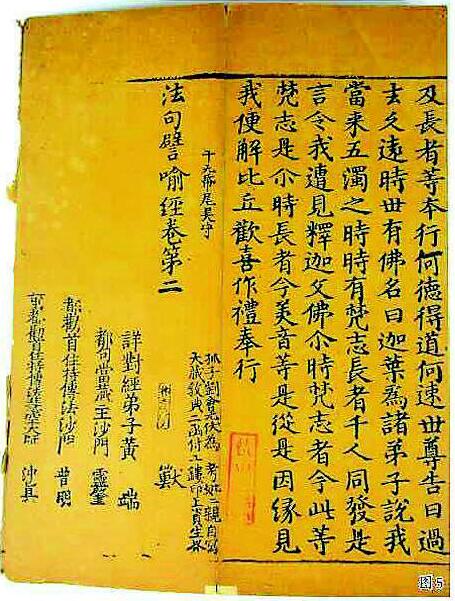 及長者等夲行何德得道何速世尊告曰過
去久遠時世有佛名曰迦葉為諸弟子說我
當来五濁之時時有梵志長者千人同發是
言令我遭見釋迦文佛尒時梵志者今此等
梵志是尒時長者今美音等是從是因緣見
我便解比丘歡喜作禮奉行
法句譬喻經卷第二
獸
伏為 考妣親自寫
詳對經弟子黃 端
都勾當藏主沙門 靈鑒
都勸首住持傳法沙門 曽明
沖真
图5